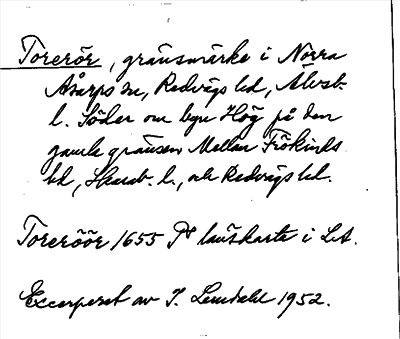 Torerör, gränsmärke i Norra
Åsarps sn, Redvägs hd, Älvsb.
l. Söder om byn Hög på den
gamla gränsen Mellan Frökinds
hd, Skarab. l., och Redvägs hd.
Toreröör 1655 Pt lantskarta i LA.
Excerperat av I. Lundahl 1952.